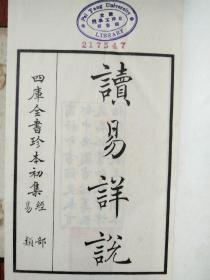 Pei Yang University
LIBRARY
217547
讀易詳說
四庫全書珍本初集 經部
易類